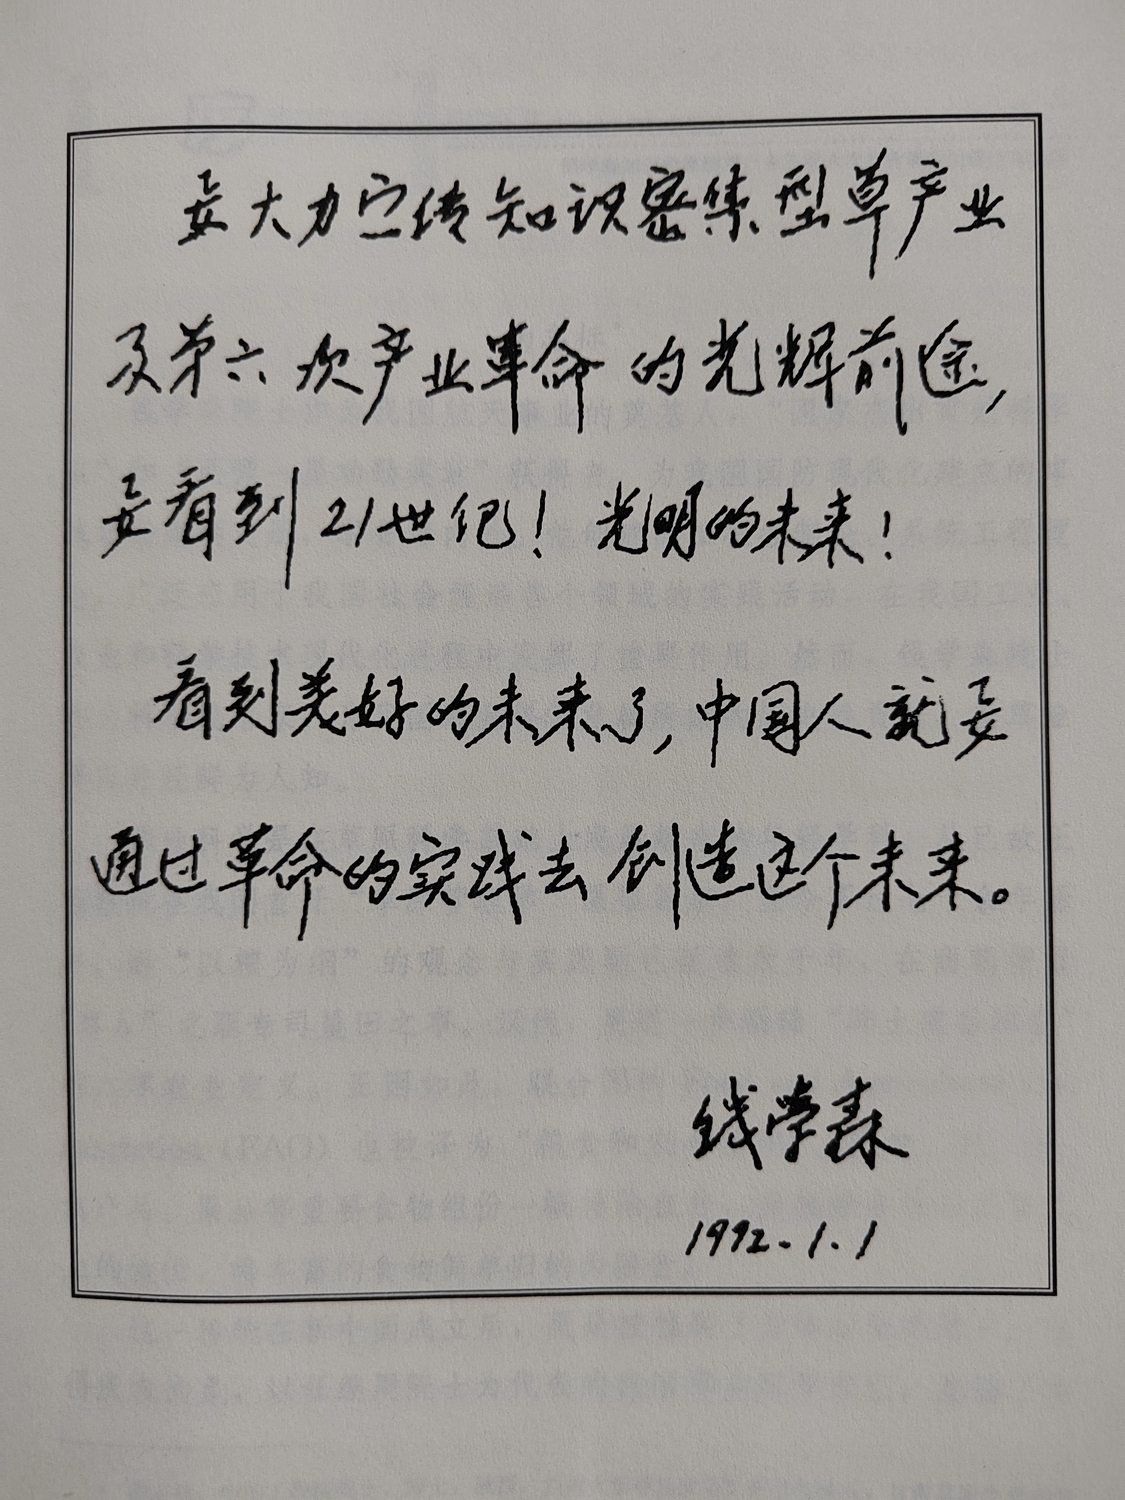 要大力宣传知识密集型草产业
及第六次产业革命的光辉前途,
要看到21世纪！光明的未来！
看到美好的未来了,中国人就要
通过革命的实践去创造这个未来。
钱学森
1992.1.1